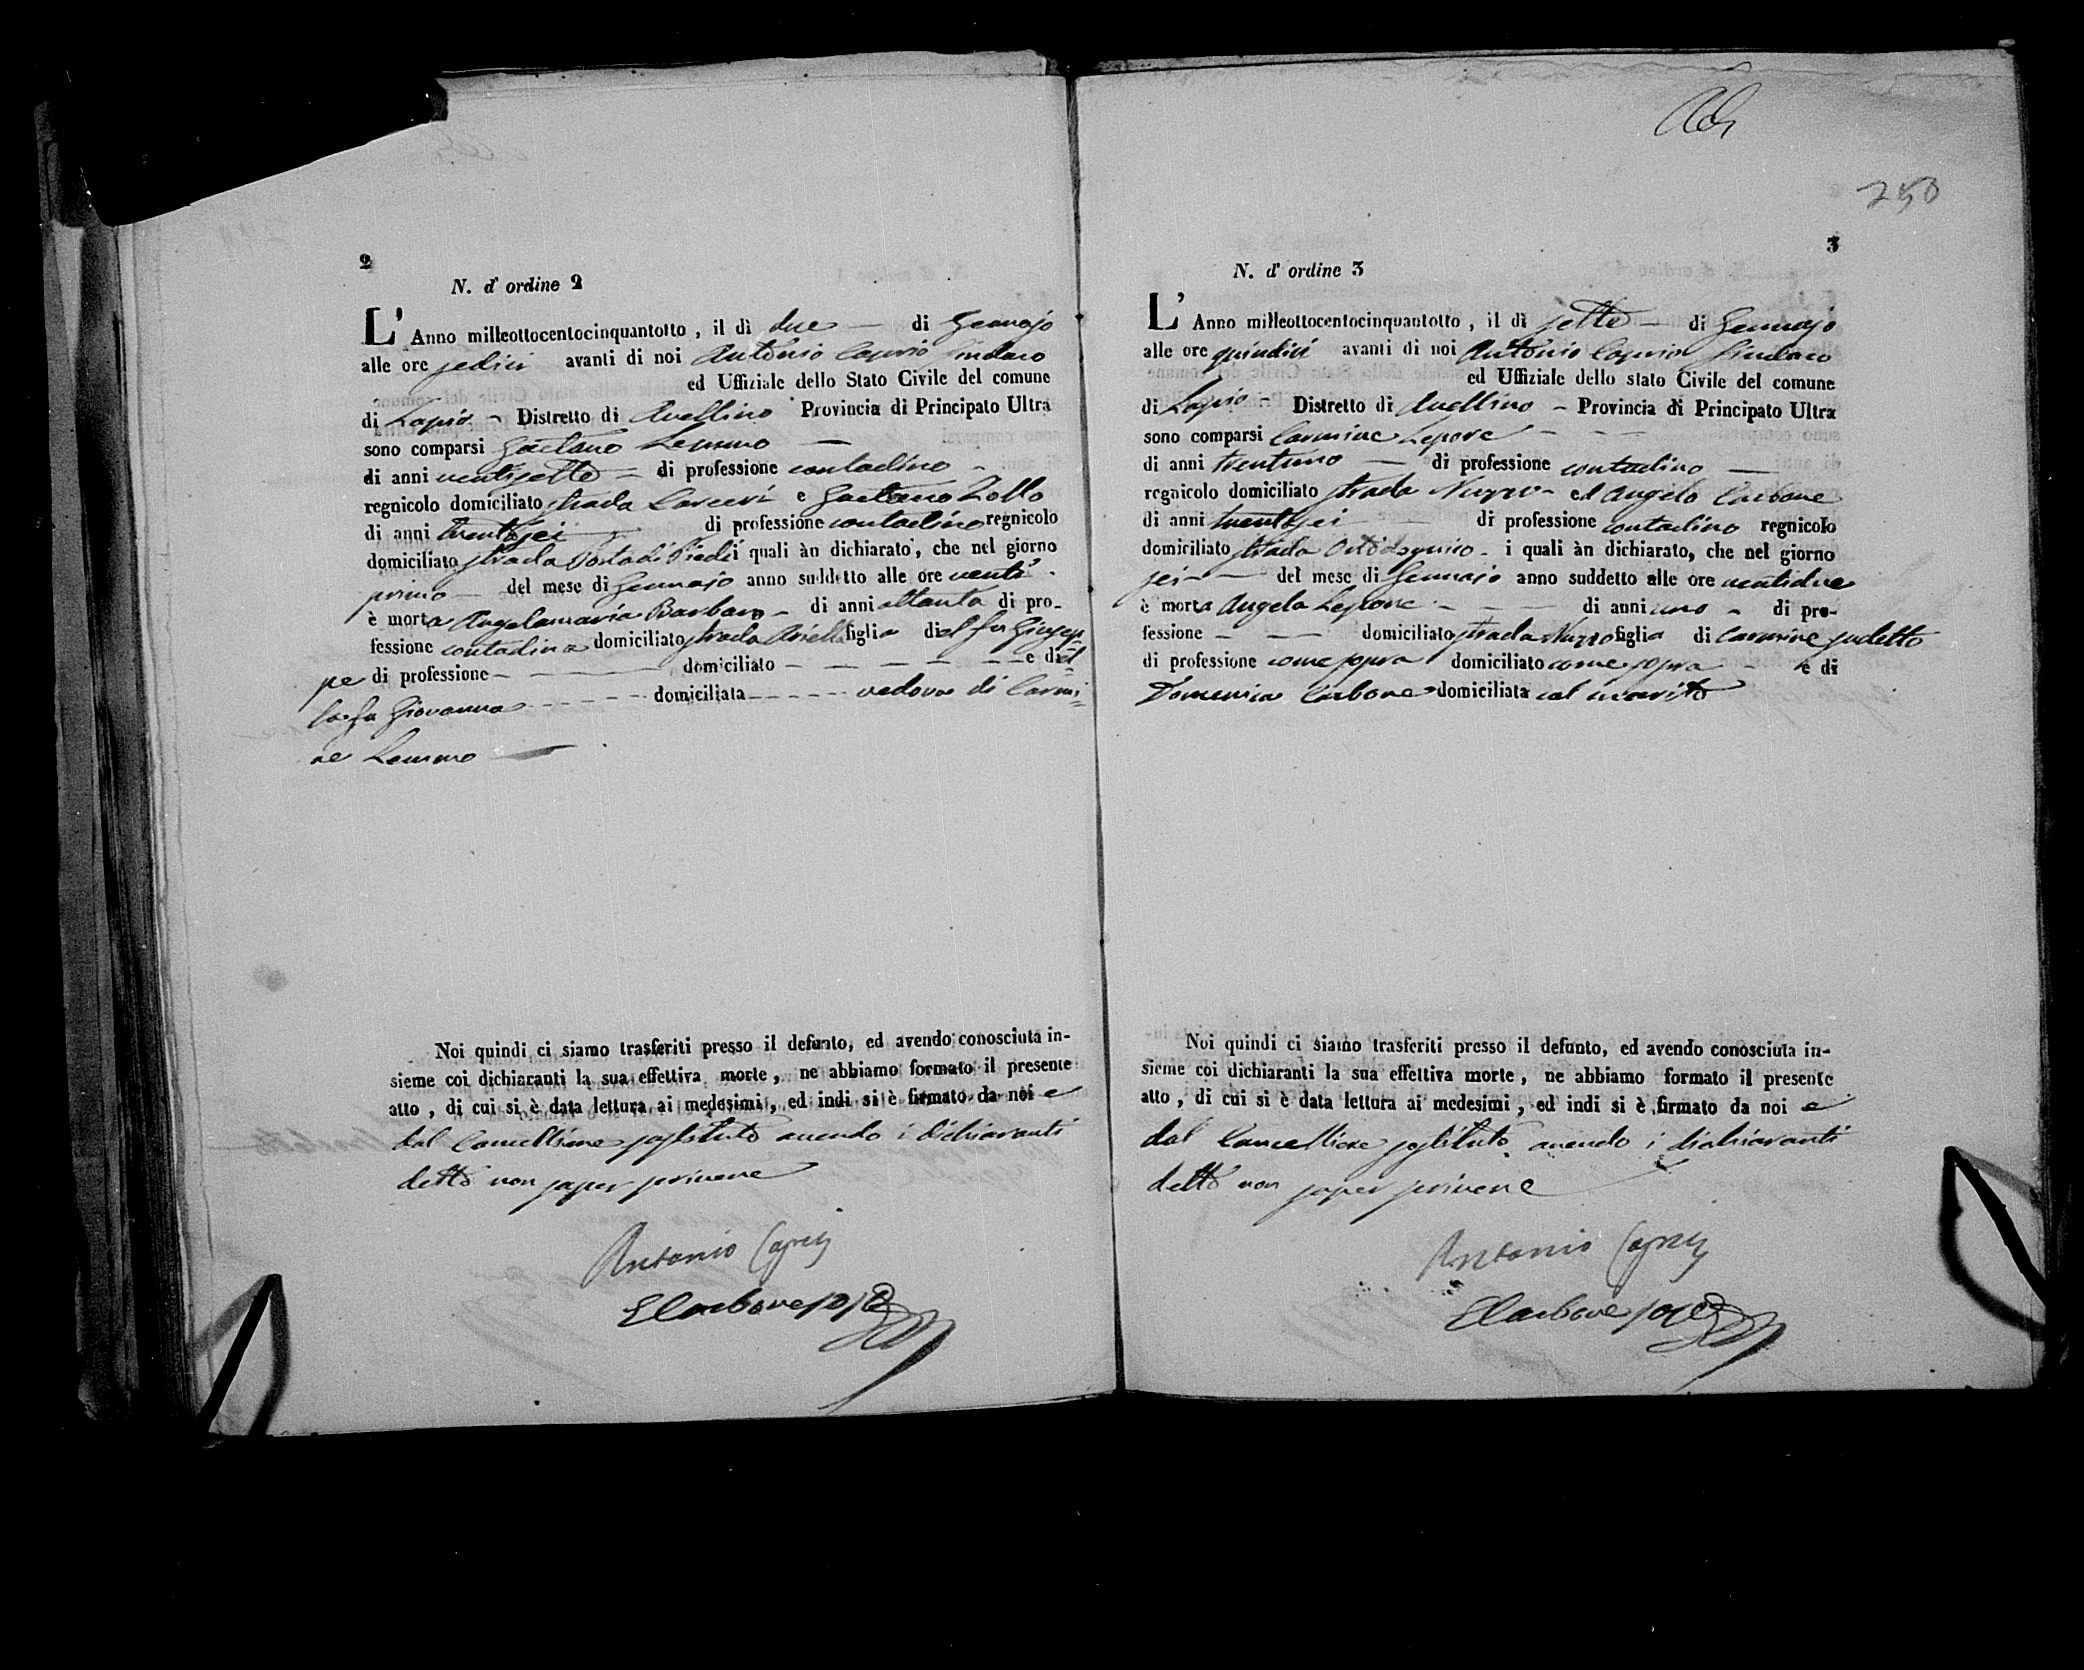 2
N. d' ordine 2
L' Anno milleottocentocinquantotto, il dì due — di Gennajo
alle ore sedici avanti di noi Antonio Caprio Sindaco
ed Uffiziale dello Stato Civile del comune
di Lapio - Distretto di Avellino Provincia di Principato Ultra
sono comparsi Gaetano Lemmo —
di anni ventisette — di professione contadino -
regnicolo domiciliato strada Carceri e Gaetano Zollo
di anni trentasei — di professione contadino regnicolo
domiciliato strada Porta di Piedi i quali àn dichiarato, che nel giorno
primo — del mese di Gennajo anno suddetto alle ore venti -
è morta Angelamaria Barbaro - di anni ottanta di pro-
fessione contadina domiciliato strada figlia del fu Giusep
pe di professione - — domiciliato - - - - - e di
fu Giovanna - - - - domiciliata - - - - vedova di Carmi=
ne Lemmo —
Noi quindi ci siamo trasferiti presso il defunto, ed avendo conosciuta in-
sieme coi dichiaranti la sua effettiva morte, ne abbiamo formato il presente
atto, di cui si è data lettura ai medesimi, ed indi si è firmato da noi e
dal Cancelliere sostituto avendo i dichiaranti
detto non saper scrivere
Antonio Caprio
ECarbone
250
3
N. d' ordine 3
L' Anno milleottocentocinquantotto, il dì sette — di Gennajo
alle ore quindici avanti di noi Antonio Caprio Sindaco
ed Uffiziale dello stato Civile del comune
di Lapio - Distretto di Avellino - Provincia di Principato Ultra
sono comparsi Carmine Lepore - - -
di anni trentuno — di professione contadino —
regnicolo domiciliato strada Nuzzo - ed Angelo Carbone
di anni trentasei - - di professione contadino regnicolo
domiciliato strada - i quali àn dichiarato, che nel giorno
sei - — del mese di Gennajo anno suddetto alle ore ventidue
è morta Angela Lepore - - — di anni uno - di pro-
fessione - - — domiciliato strada Nuzzo figlia di Carmine sudetto
di professione come sopra domiciliato come sopra - e di
Domenica Carbone domiciliata col marito
Noi quindi ci siamo trasferiti presso il defunto, ed avendo conosciuta in-
sieme coi dichiaranti la sua effettiva morte, ne abbiamo formato il presente
atto, di cui si è data lettura ai medesimi, ed indi si è firmato da noi e
dal Cancelliere sostituto avendo i dichiaranti
detto non saper scrivere
Antonio Caprio
ECarbone